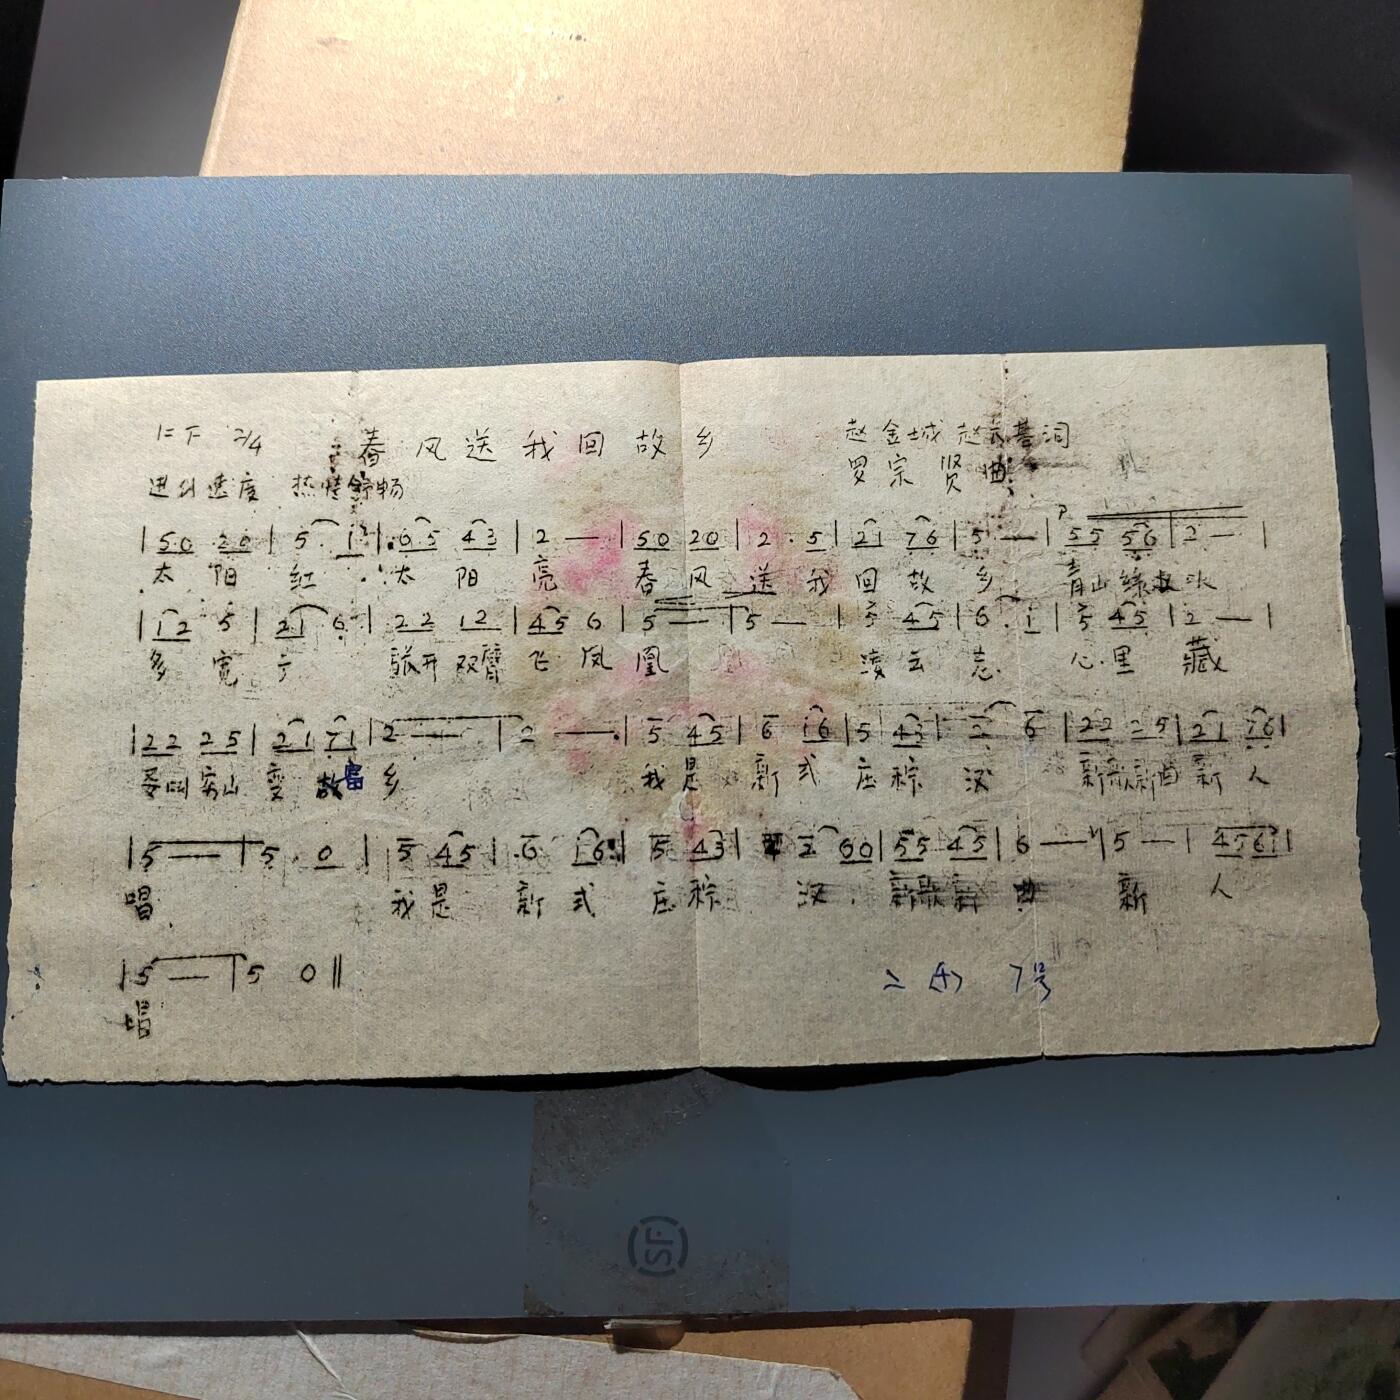 1=F 2/4 春风送我回故乡 赵金城 赵云善词
进行速度 热情舒畅 罗宗贤 曲
|5 0 2 0|5 · i|6 5 4 3|2 —|5 0 2 0|2 · 5|2 1 7 6|5 —|5 5 5 6|2 —|
太 阳 红 太 阳 亮 春 风 送 我 回 故 乡 青山绿水
|1 2 5|2 1 6|2 2 1 2|4 5 6|5 —|5 —|5 4 5|6 · i|5 4 5|2 —|
多 宽 广 张开双臂飞凤凰 凌云志 心里藏
|2 2 2 5|2 1 7 1|2 —|2 —|5 4 5|6 i 6|5 4 3|2 6|2 2 2 5|2 1 7 6|
要叫穷山变故富乡 我是新式庄稼汉 新歌新曲新人
|5 —|5 · 0|5 4 5|6 i 6|5 4 3|2 0 0|5 5 4 5|6 —|5 —|4 5 6 i|
唱 我是新式庄稼汉 新歌新曲新人
|5 —|5 0‖ 二(4) 7号
唱
SF